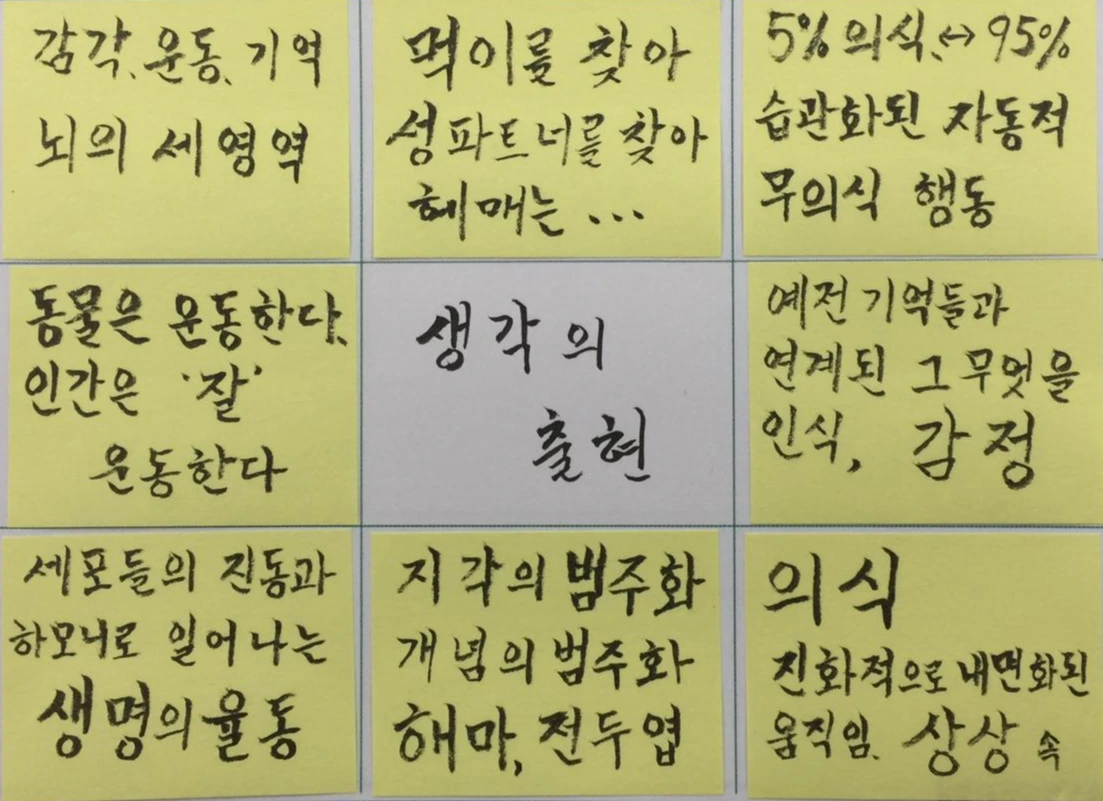 감각, 운동, 기억
뇌의 세영역
먹이를 찾아
성파트너를 찾아
헤매는 ...
5% 의식, ↔ 95%
습관화된 자동적
무의식 행동
동물은 운동한다,
인간은 '잘'
운동한다
생각의
출현
예전 기억들과
연계된 그 무엇을
인식, 감정
세포들의 진동과
하모니로 일어나는
생명의 율동
지각의 범주화
개념의 범주화
해마, 전두엽
의식
진화적으로 내면화된
움직임. 상상 속